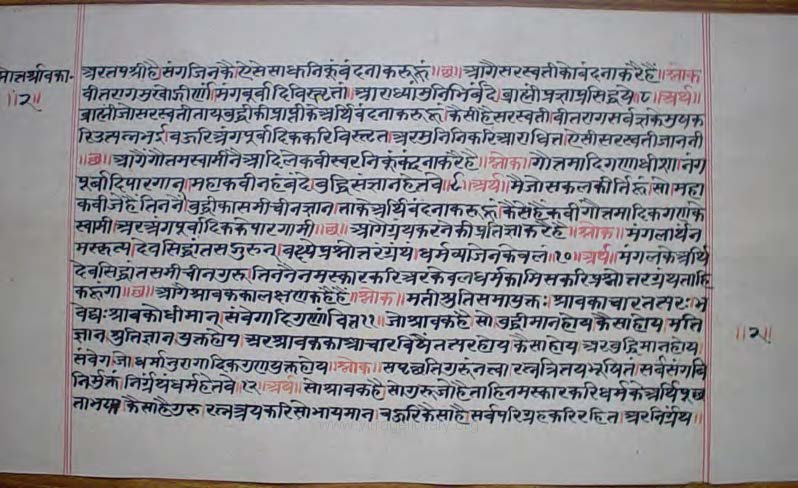 प्रश्नोत्तरश्रावका-
॥२॥
अर रत श्री है संग जिनकै ऐसे साधुनिकूं बंदना करूं हूं ॥छ॥ आगै सरस्वती को बंदना करै हैं ॥श्लोक
वीतरागमुखोद्गीर्णां मंगपूर्वादिविस्तृतां आराध्यां मुनिभिर्वंदे ब्राह्मीं प्रज्ञाप्रसिद्धये ८ ॥अर्थ॥
ब्राह्मी जो सरस्वती ताय बुद्धी की प्राप्ती कै अर्थि बंदना करूं हूं कैसी है सरस्वती वीतराग सर्वज्ञ के मुख क
रि उत्पन्न भई बऊरि अंग पूर्वादिक करि विस्तृत अर मुनिनि करि आराधित ऐसी सरस्वती जाननी
॥छ॥ आगै गौतम स्वामी नै आदि ले कवीस्वरनिकूं बंदना करै हैं ॥श्लोक॥ गौतमादिगणाधीशा नंग
पूर्वादिपारगान् महाकवीनहं बंदे बुद्धिसंज्ञानहेतवे ।९ ॥अर्थ॥ मै जो सकलकीर्ति हूं सो महा
कवी जे हे तिननै बुद्धी का समीचीन ज्ञान ताकै अर्थि बंदना करूं हूं कैसे हैं कवी गौतमादिक गण के
स्वामी अर अंग पूर्वादिक के पारगामी ॥छ॥ आगै ग्रंथ करने की प्रतिज्ञा करै है ॥श्लोक॥ मंगलार्थं न
मस्कृत्य देवसिद्धांतसद्गुरून् वक्ष्ये प्रश्नोत्तरं ग्रंथं धर्मव्याजेन केवलं ॥१०॥ अर्थ॥ मंगल कै अर्थि
देव सिद्धांत समीचीन गुरु तिननै नमस्कार करि अर केवल धर्म का मिस करि प्रश्नोत्तर ग्रंथ ताहि
कहूंगा ॥छ॥ आगै श्रावक का लक्षण कहै हैं ॥श्लोक॥ मतीश्रुतिसमायुक्तः श्रावकाचारतत्परः भ
वेद्यः श्रावको धीमान् संवेगादिगुणान्वित ११ ॥ जो श्रावक है सो बुद्धीमान होय कैसा होय मति
ज्ञान श्रुतिज्ञान युक्त होय अर श्रावक का आचार विषैं तत्पर होय कैसा होय अर बुद्धिमान होय
संवेग जो धर्मानुरागादिक गुण युक्त होय ॥श्लोक॥ स पृच्छति गुरूं नत्वा रत्नत्रितयभूषितं सर्वसंगवि
निर्मुक्तं निर्ग्रंथं धर्महेतवे ॥१२॥ अर्थ॥ सो श्रावक है सो गुरू जो हे ताहि नमस्कार करि धर्म कै अर्थि पूछ
ता भया कैसा है गुरू रत्नत्रय करि सोभायमान बऊरि कैसा है सर्व परिग्रह करि रहित अर निर्ग्रंथ ॥
॥२॥